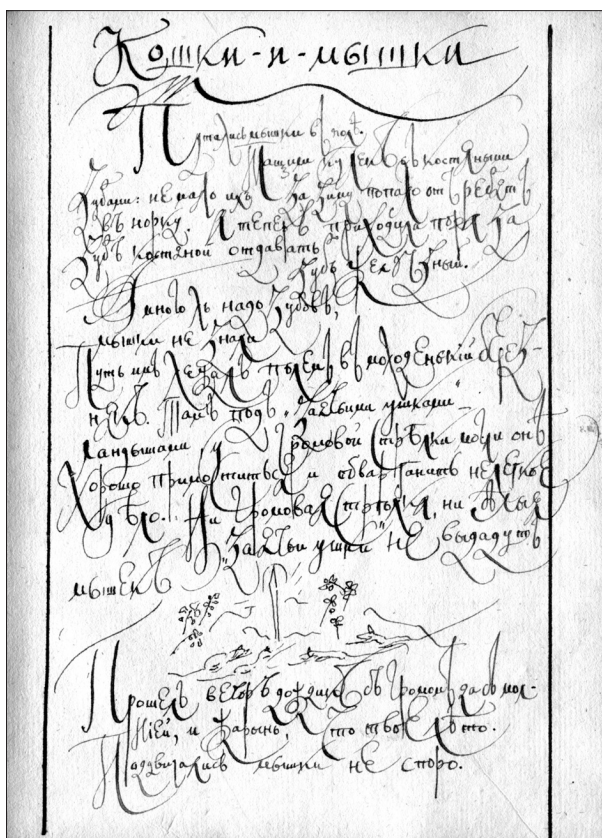 Кошки-и-мышки
Путались мышки в полѣ.
Тащили кулекъ съ костяными
Зубами: не мало ихъ за зиму попало отъ ребятъ
въ норку. А теперь приходила пора за
Зубъ костяной отдавать
Зубъ желѣзный.
А много ль надо зубовъ,
мышки не знали
Путь имъ лежалъ полемъ въ молоденькій берез-
някъ. Тамъ подъ „Заячьими ушками"
ландышами у Громовой стрѣлки могли онѣ
Хорошо примоститься и обварганить нелегкое
дѣло. Ни Громовая стрѣлка, ни
„Заячьи ушки" не выдадутъ
мышекъ
Прошелъ вечеръ дождикъ съ громомъ да съ мол-
ніей, и Ярынь, что твое лѣто.
Подвигались мышки не споро.